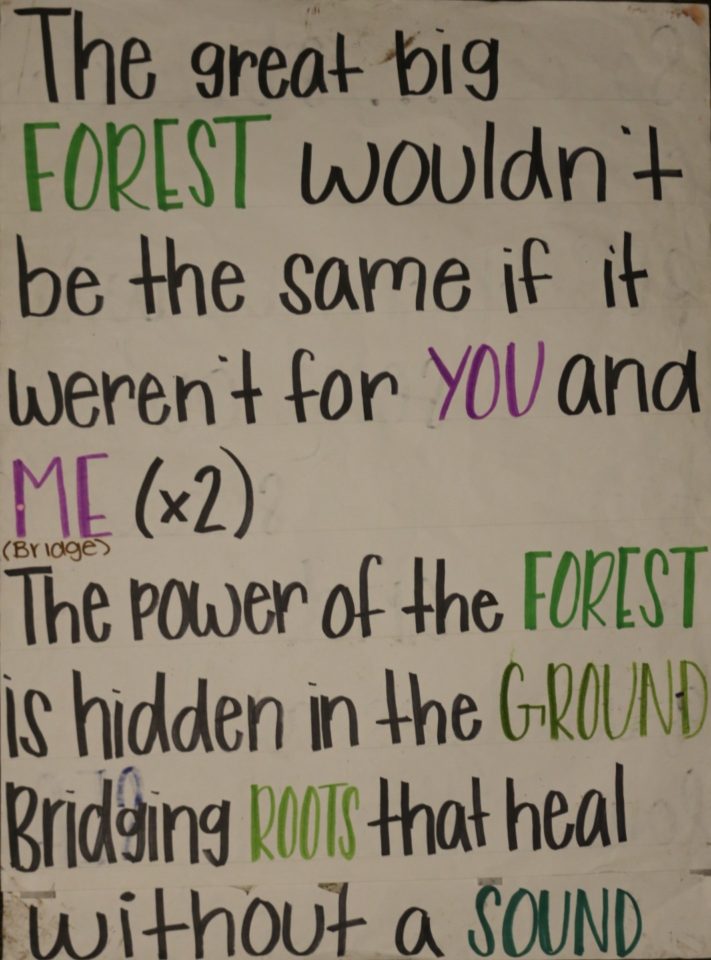 The great big
FOREST wouldn't
be the same if it
weren't for YOU and
ME (x2)
(Bridge)
The power of the FOREST
is hidden in the GROUND
Bridging ROOTS that heal
without a SOUND